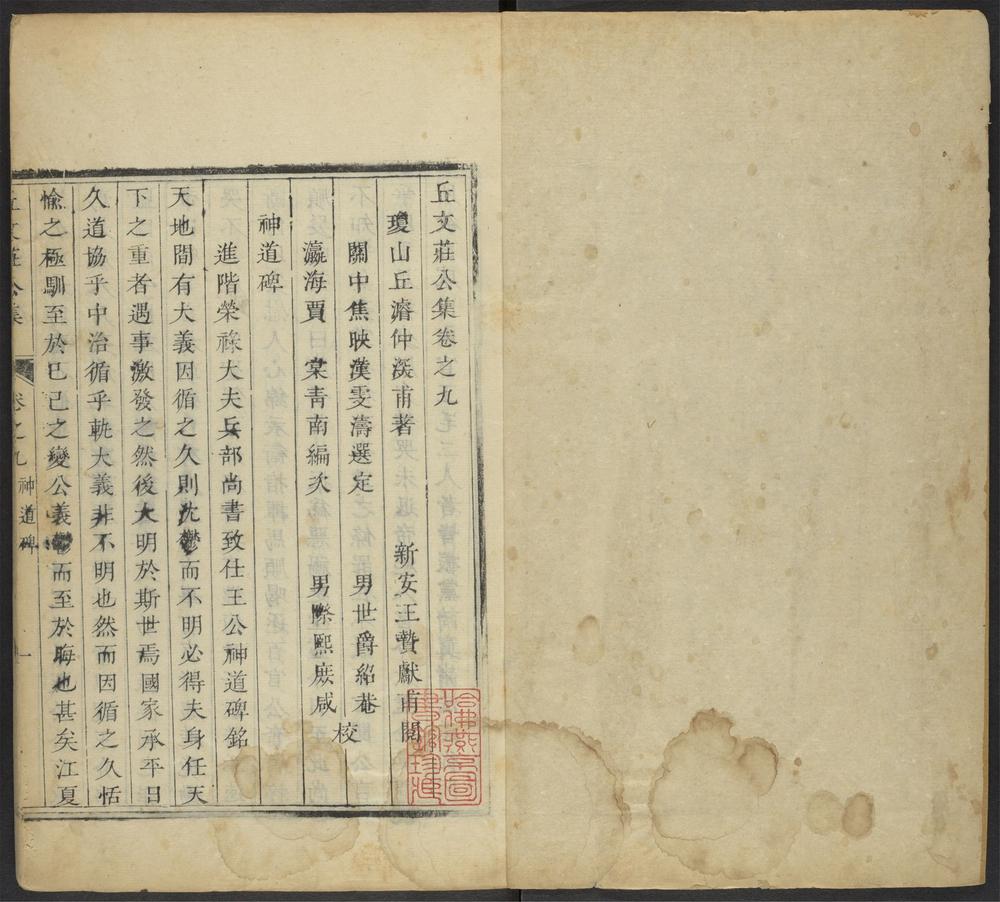 丘文莊公集卷之九
瓊山丘濬仲深甫著　新安王贄獻甫閱
關中焦映漢雯濤選定　男世爵紹菴
瀛海賈　棠青南編次　男縩熙庶咸　校
神道碑
進階榮祿大夫兵部尚書致仕王公神道碑銘
天地間有大義因循之久則沈鬱而不明必得夫身任天
下之重者遇事激發之然後大明於斯世焉國家承平日
久道協乎中治循乎軌大義非不明也然而因循之久恬
愉之極馴至於巳己之變公義鬱而至於晦也甚矣江夏
丘文莊公集　卷之九　神道碑　一
哈佛燕京圖書館珍藏